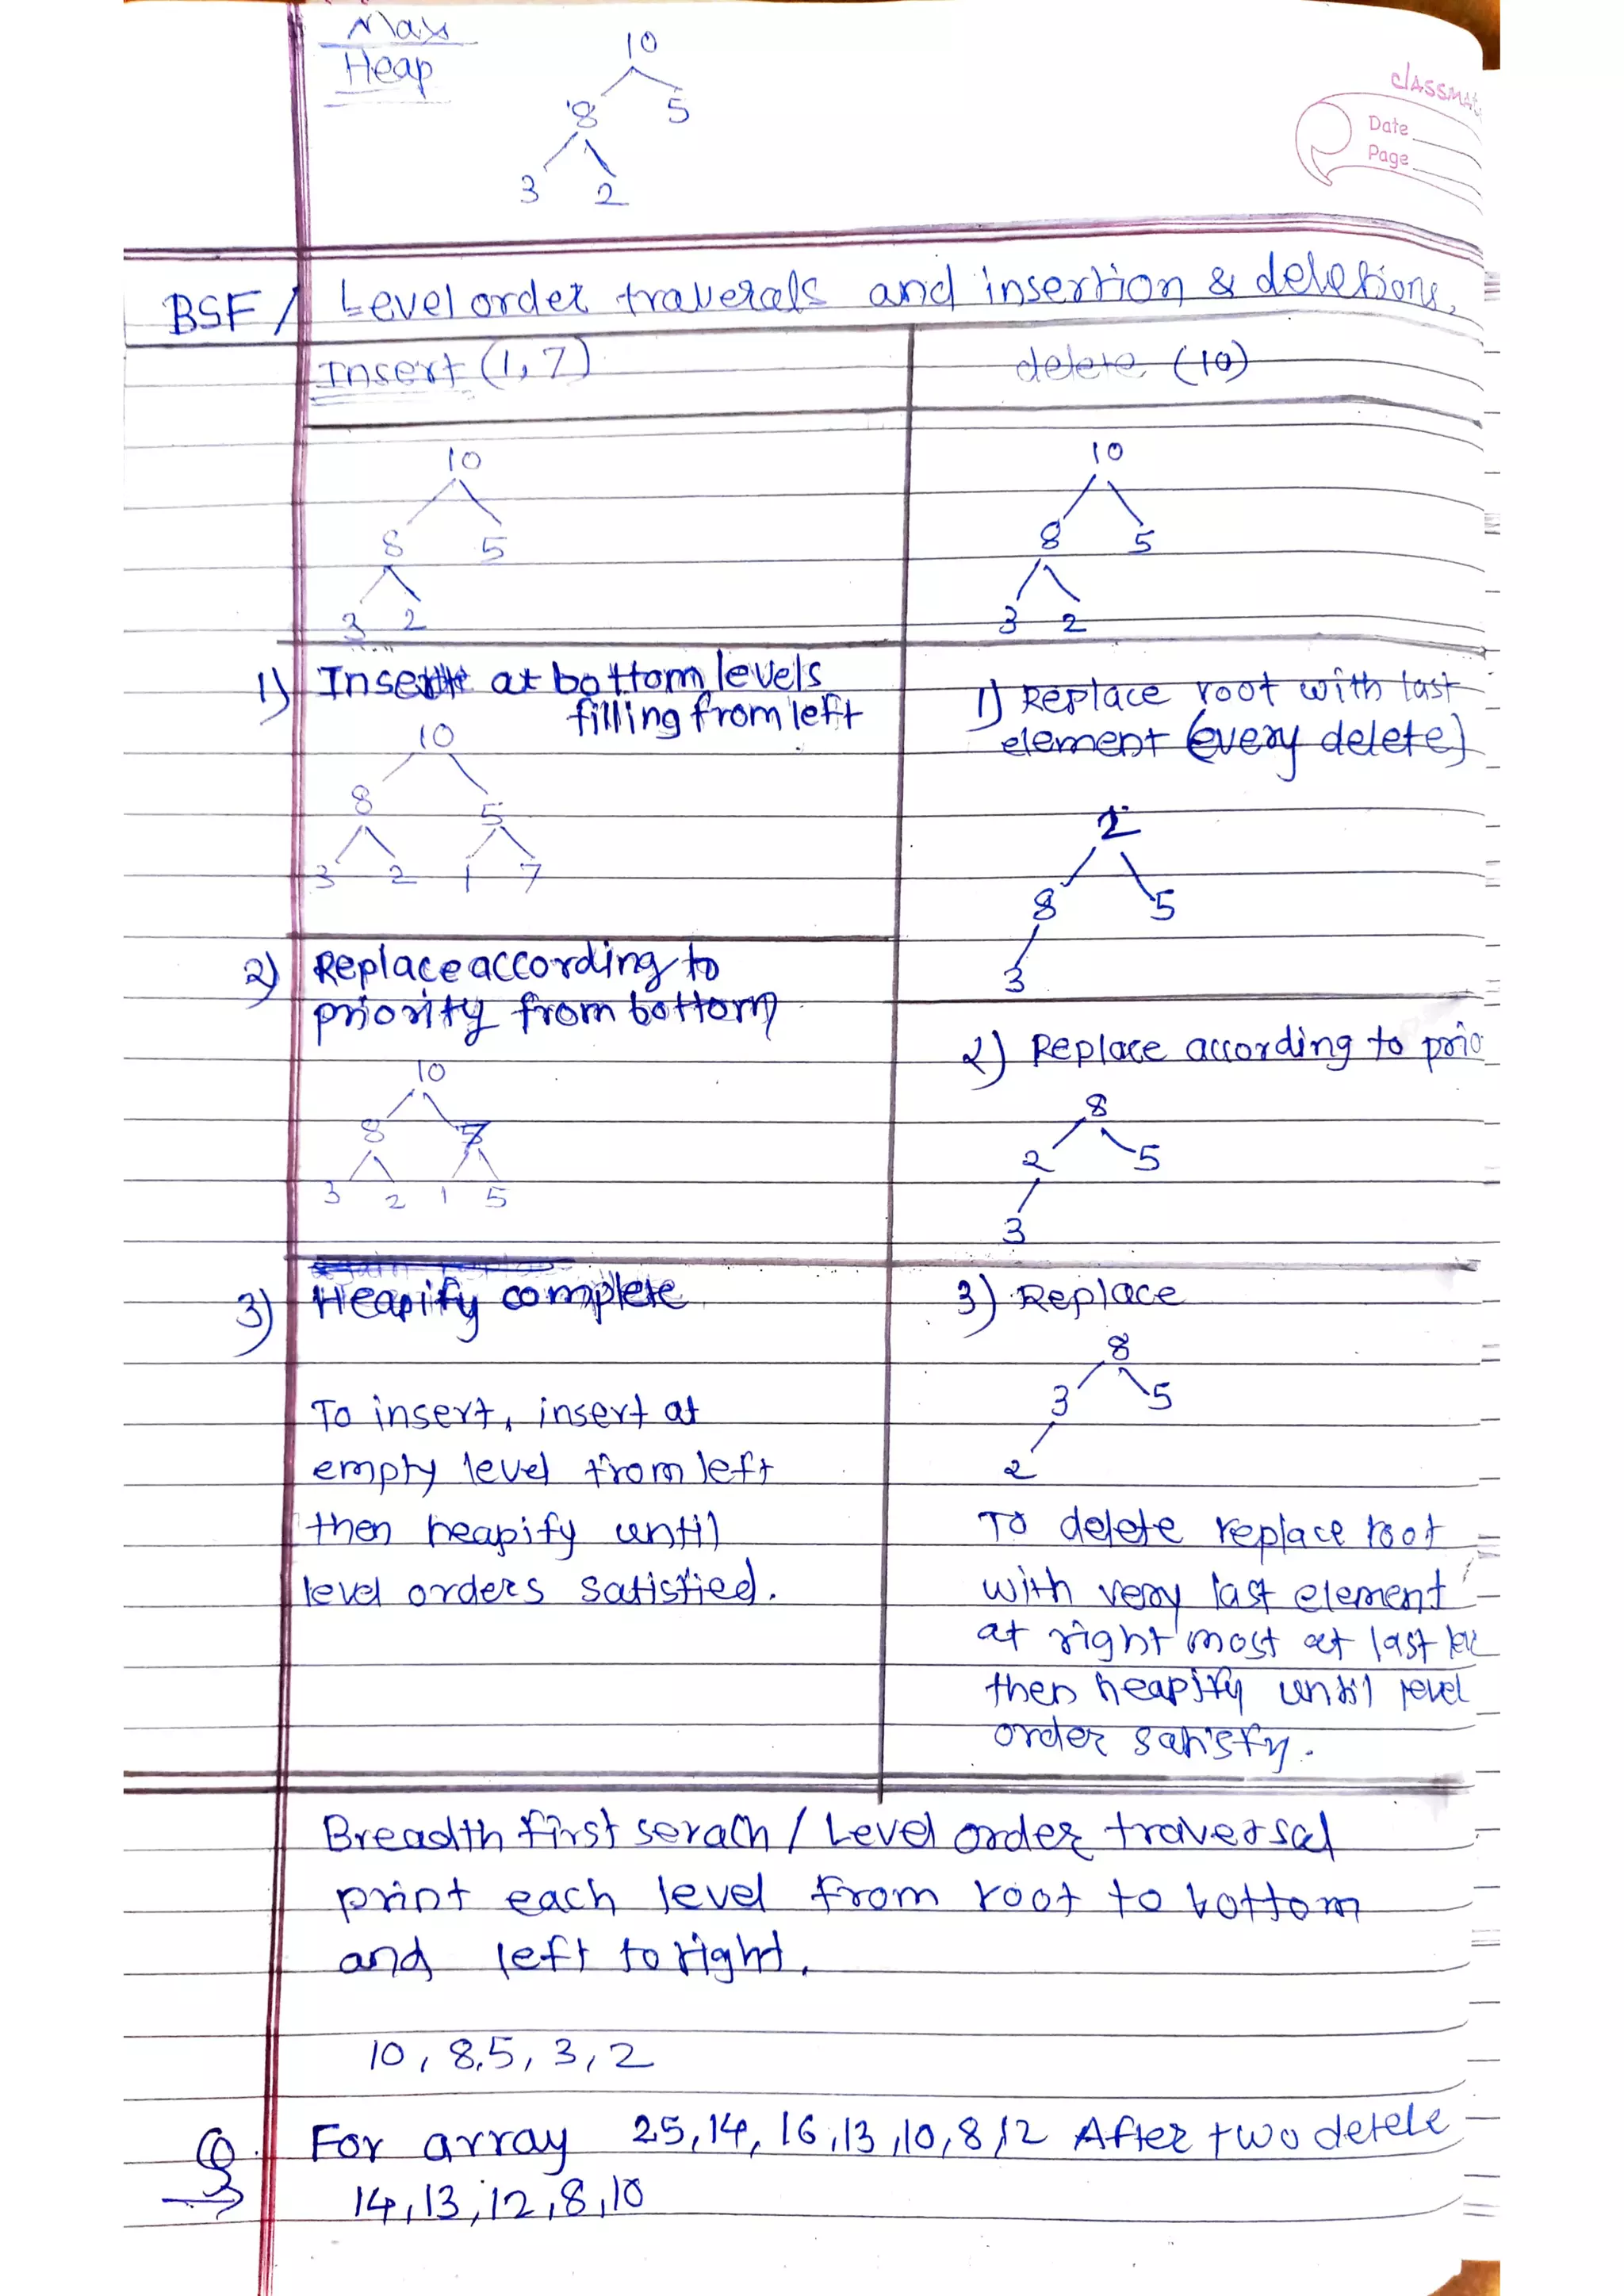 Max
Heap
10
8 5
3 2
classmat
Date
Page
BSF / Level order traverals and insertion & deletions.
Insert (1, 7)
10
8 5
3 2
1) Insert at bottom levels
filling from left
10
8 5
3 2 1 7
2) Replace according to
priority from bottom
10
8 7
3 2 1 5
3) Heapify complete
To insert, insert at
empty level from left
then heapify until
level orders satisfied.
delete (10)
10
8 5
3 2
1) Replace root with last
element (every delete)
2
8 5
3
2) Replace according to prio
8
2 5
3
3) Replace
8
3 5
2
To delete replace root
with very last element
at right most at last
then heapify until level
order satisfy.
Breadth first serach / Level order traversal
print each level from root to bottom
and left to right.
10, 8,5, 3, 2
Q For array 25, 14, 16, 13, 10, 8, 12 After two detele
→ 14, 13, 12, 8, 10